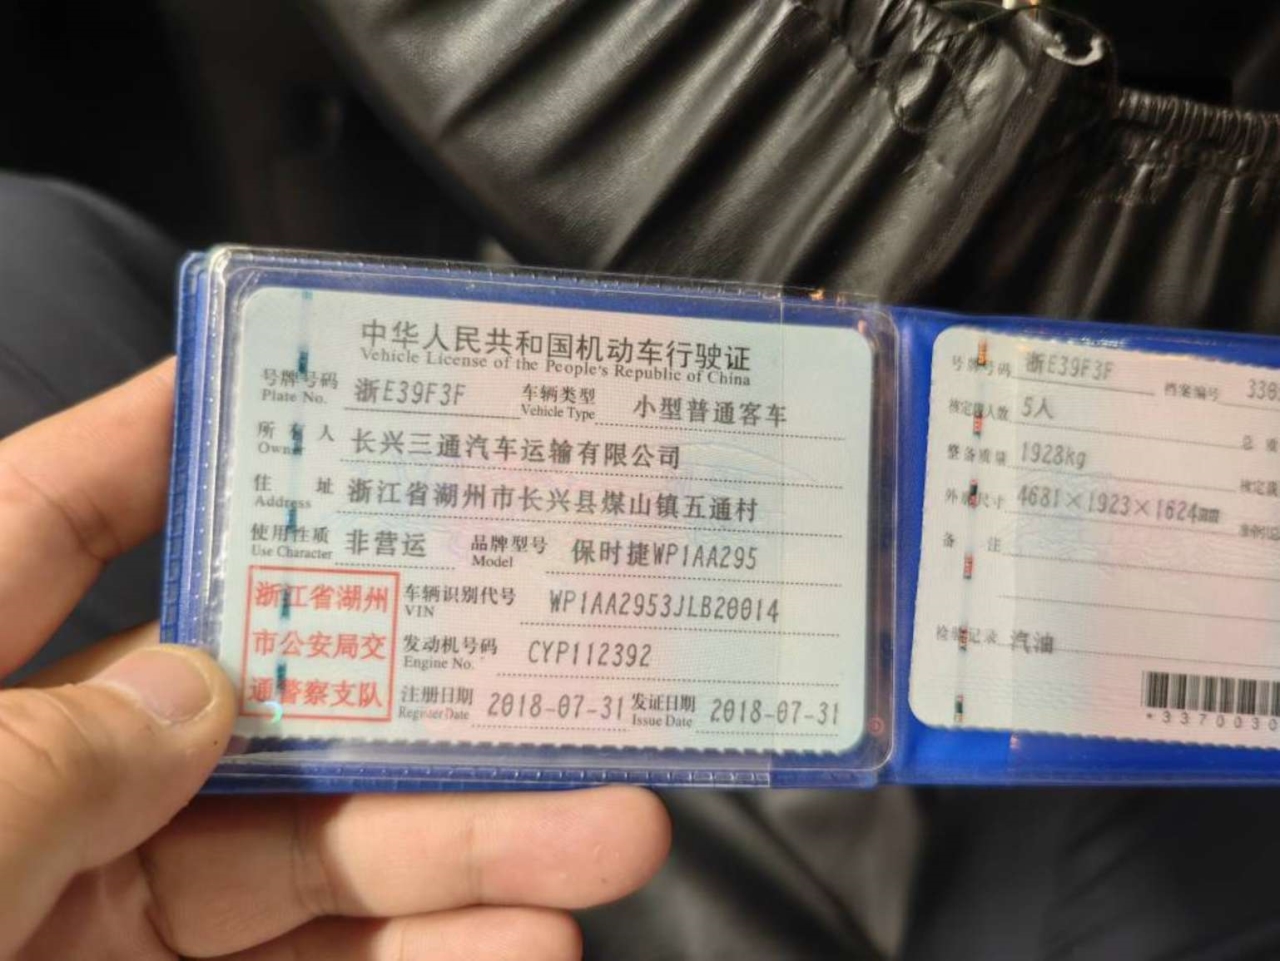 中华人民共和国机动车行驶证
Vehicle License of the People's Republic of China
号牌号码 浙E39F3F 车辆类型 小型普通客车
Plate No. Vehicle Type
所有人 长兴三通汽车运输有限公司
Owner
住址 浙江省湖州市长兴县煤山镇五通村
Address
使用性质 非营运 品牌型号 保时捷WP1AA295
Use Character Model
浙江省湖州
市公安局交
通警察支队
车辆识别代号 WP1AA2953JLB20014
VIN
发动机号码 CYP112392
Engine No.
注册日期 2018-07-31 发证日期 2018-07-31
Register Date Issue Date
号牌号码 浙E39F3F 档案编号 330
核定载人数 5人
整备质量 1928kg
外廓尺寸 4681×1923×1624
备注
检验记录 汽油
*3370030